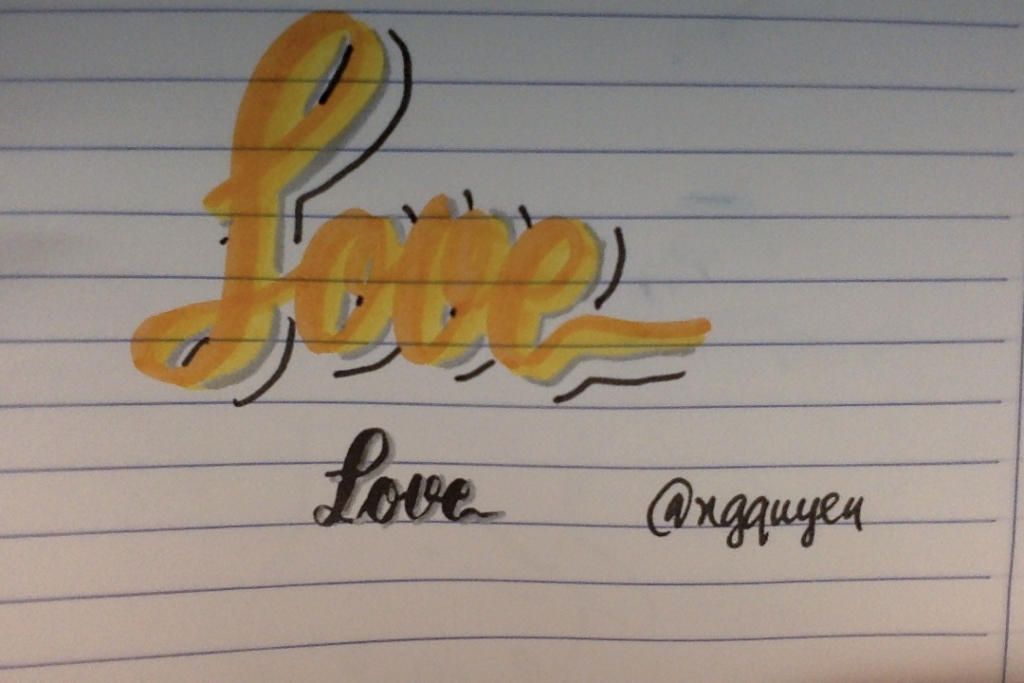 Love
Love @xgquyen